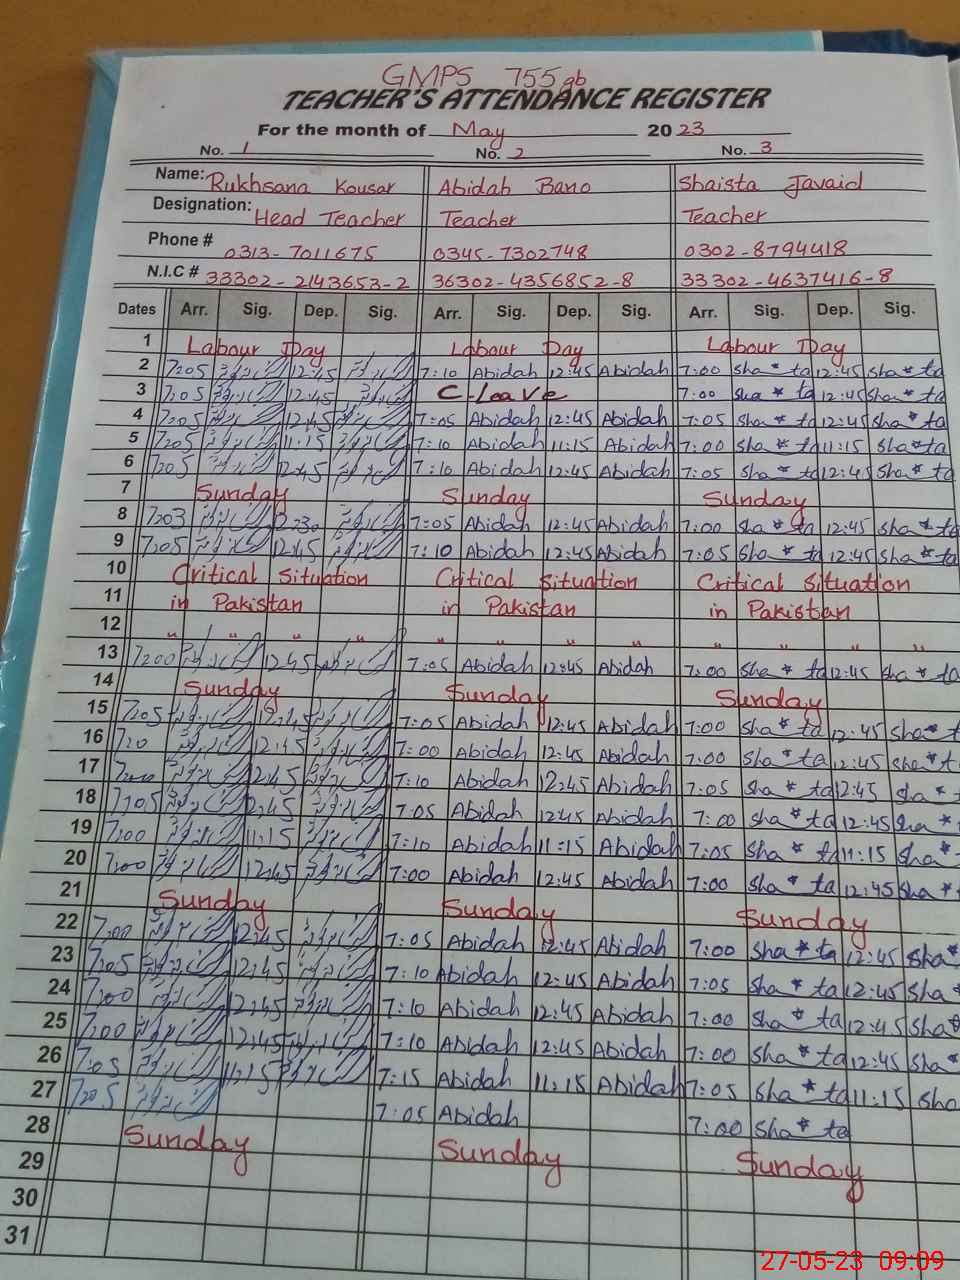 GMPS 755 gb
TEACHER'S ATTENDANCE REGISTER
For the month of May 2023
No. 1 No. 2 No. 3
Name: Rukhsana Kousar Abidah Bano Shaista Javaid
Designation: Head Teacher Teacher Teacher
Phone # 0313-7011675 0345-7302748 0302-8794418
N.I.C # 33302-2143653-2 36302-4356852-8 33302-4637416-8
Dates Arr. Sig. Dep. Sig. Arr. Sig. Dep. Sig. Arr. Sig. Dep. Sig.
1 Labour Day Labour Day Labour Day
2 7:05 12:45 7:10 Abidah 12:45 Abidah 7:00 Sha*ta 12:45 Sha*ta
3 7:05 12:45 C-Leave 7:00 Sha*ta 12:45 Sha*ta
4 7:05 12:45 7:05 Abidah 12:45 Abidah 7:05 Sha*ta 12:45 Sha*ta
5 7:05 11:15 7:10 Abidah 11:15 Abidah 7:00 Sha*ta 11:15 Sha*ta
6 7:05 12:45 7:10 Abidah 12:45 Abidah 7:05 Sha*ta 12:45 Sha*ta
7 Sunday Sunday Sunday
8 7:03 12:30 7:05 Abidah 12:45 Abidah 7:00 Sha*ta 12:45 Sha*ta
9 7:05 12:45 7:10 Abidah 12:45 Abidah 7:05 Sha*ta 12:45 Sha*ta
10 Critical Situation Critical Situation Critical Situation
11 in Pakistan in Pakistan in Pakistan
12 " " " " " " " " " " " "
13 7:00 12:45 7:05 Abidah 12:45 Abidah 7:00 Sha*ta 12:45 Sha*ta
14 Sunday Sunday Sunday
15 7:05 12:45 7:05 Abidah 12:45 Abidah 7:00 Sha*ta 12:45 Sha*t
16 12:45 7:00 Abidah 12:45 Abidah 7:00 Sha*ta 12:45 Sha*t
17 12:45 7:10 Abidah 12:45 Abidah 7:05 Sha*ta 12:45 Sha*
18 7:05 12:45 7:05 Abidah 12:45 Abidah 7:00 Sha*ta 12:45 Sha*
19 7:00 11:15 7:10 Abidah 11:15 Abidah 7:05 Sha*ta 11:15 Sha*
20 7:00 12:45 7:00 Abidah 12:45 Abidah 7:00 Sha*ta 12:45 Sha*
21 Sunday Sunday Sunday
22 7:00 12:45 7:05 Abidah 12:45 Abidah 7:00 Sha*ta 12:45 Sha*
23 7:05 12:45 7:10 Abidah 12:45 Abidah 7:05 Sha*ta 12:45 Sha*
24 7:00 12:45 7:10 Abidah 12:45 Abidah 7:00 Sha*ta 12:45 Sha*
25 7:00 12:45 7:10 Abidah 12:45 Abidah 7:00 Sha*ta 12:45 Sha*
26 7:05 11:15 7:15 Abidah 11:15 Abidah 7:05 Sha*ta 11:15 Sha
27 7:05 7:05 Abidah 7:00 Sha*ta
28 Sunday Sunday Sunday
29
30
31
27-05-23 09:09